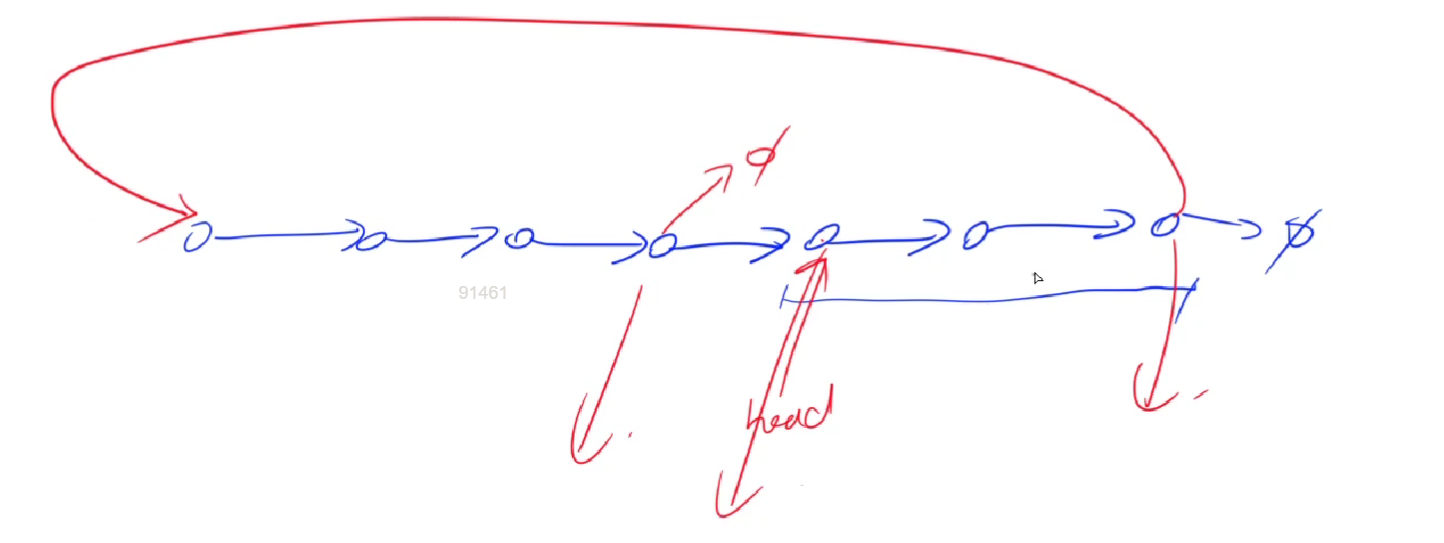 ∅
∅
91461
head